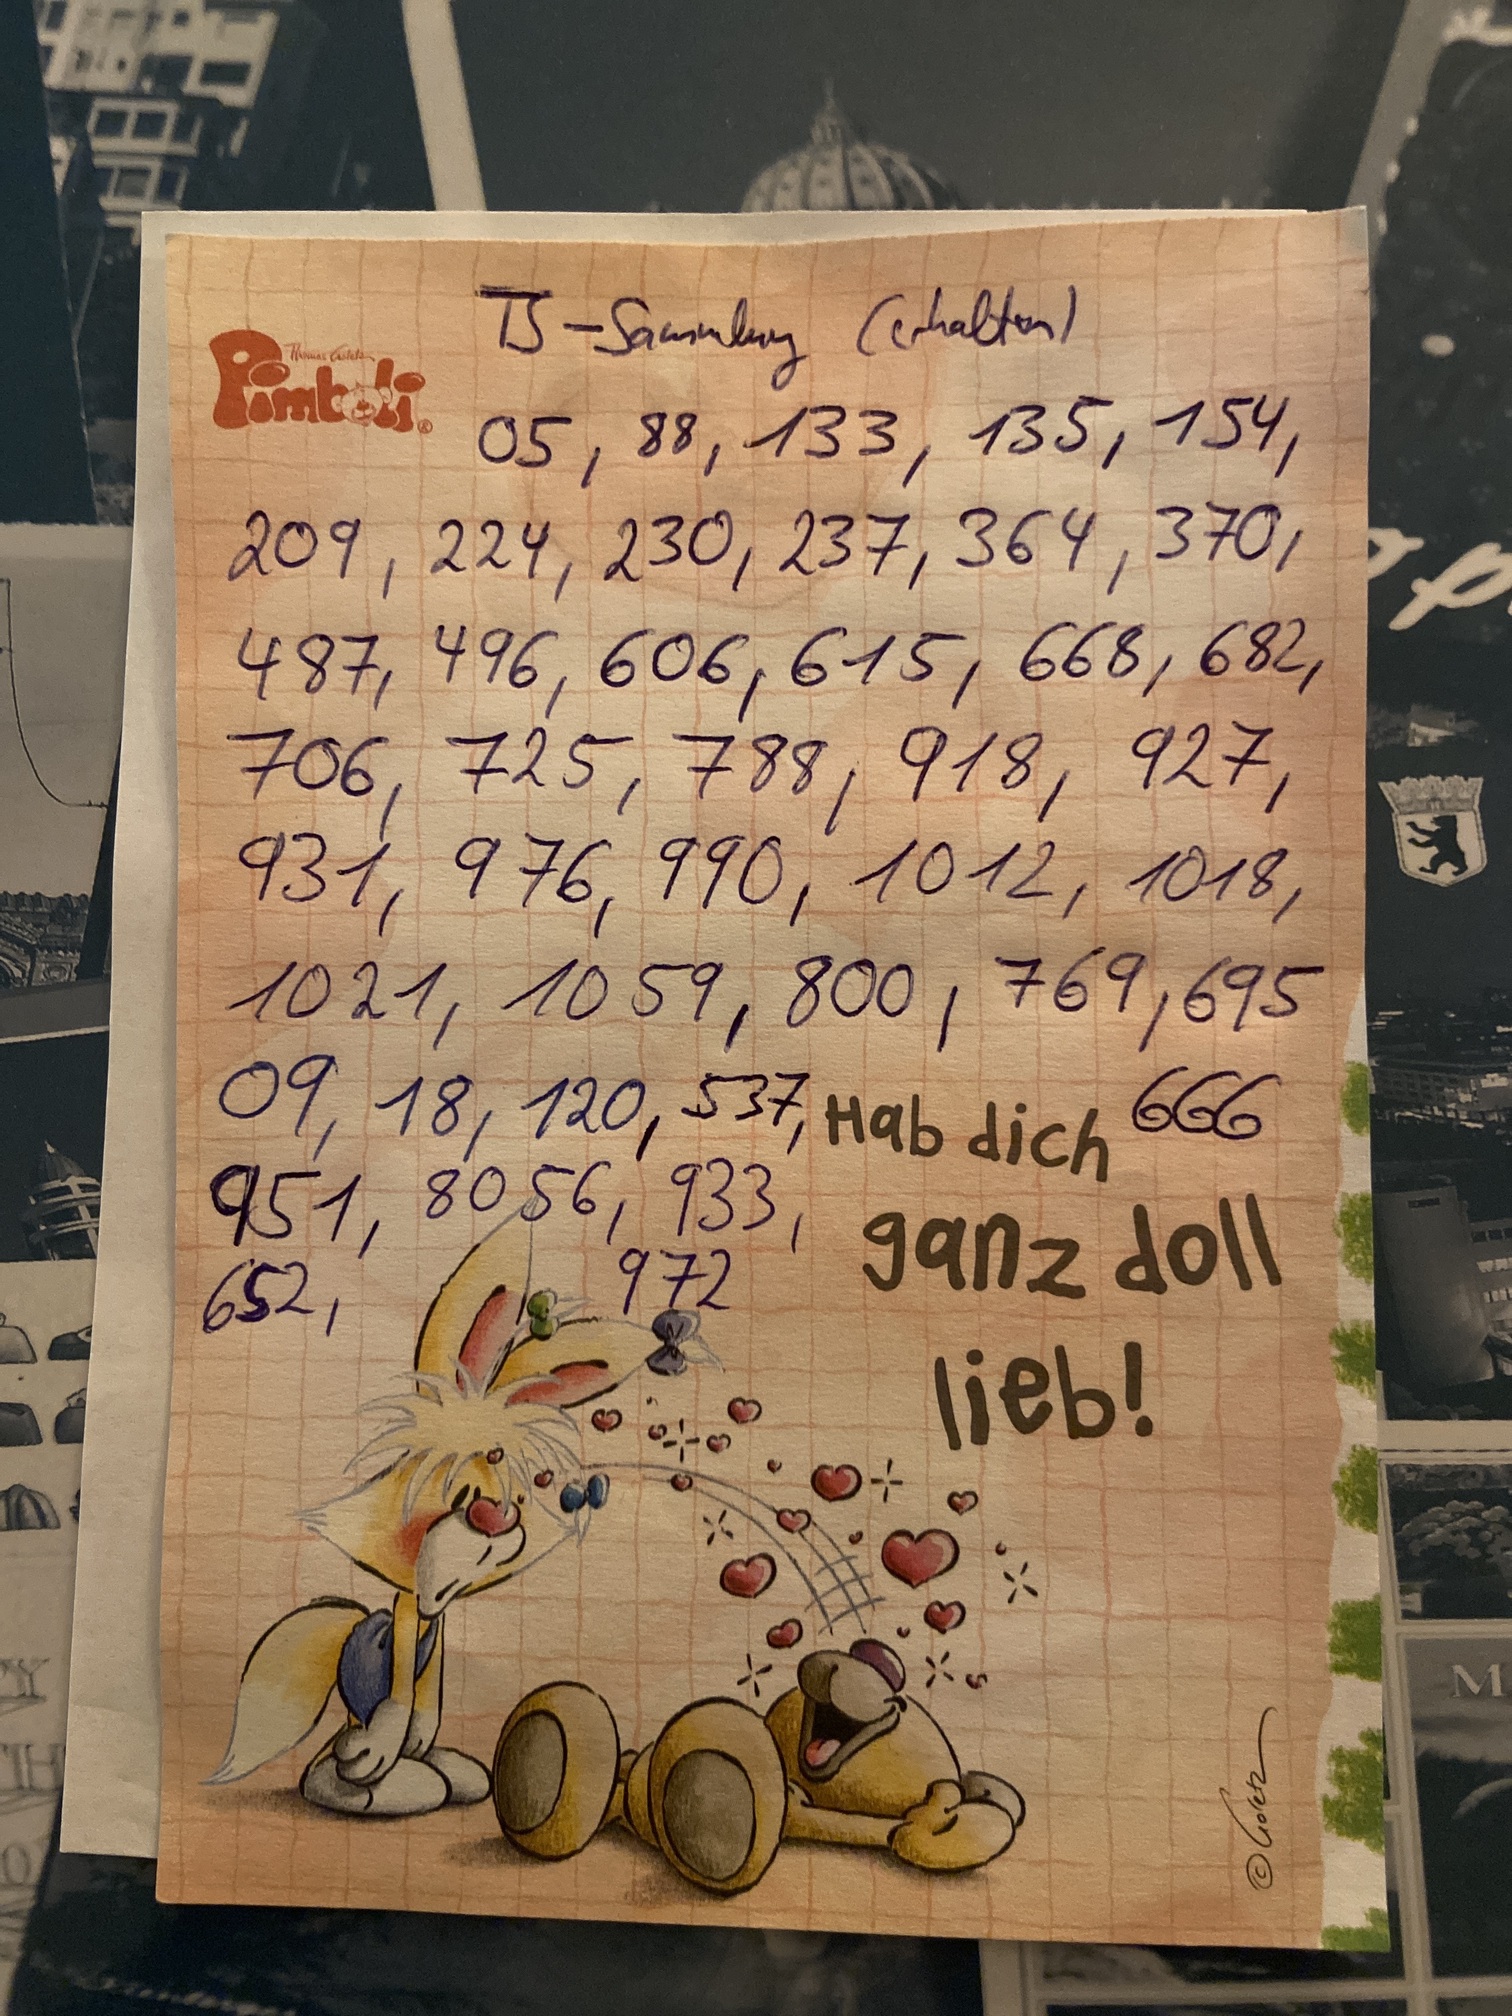 TS-Sammlung (erhalten)
Thomas Goletz
Pimboli®
05, 88, 133, 135, 154,
209, 224, 230, 237, 364, 370,
487, 496, 606, 615, 668, 682,
706, 725, 788, 918, 927,
931, 976, 990, 1012, 1018,
1021, 1059, 800, 769, 695
09, 18, 120, 537, 666
951, 8056, 933,
652, 972
Hab dich
ganz doll
lieb!
© Goletz